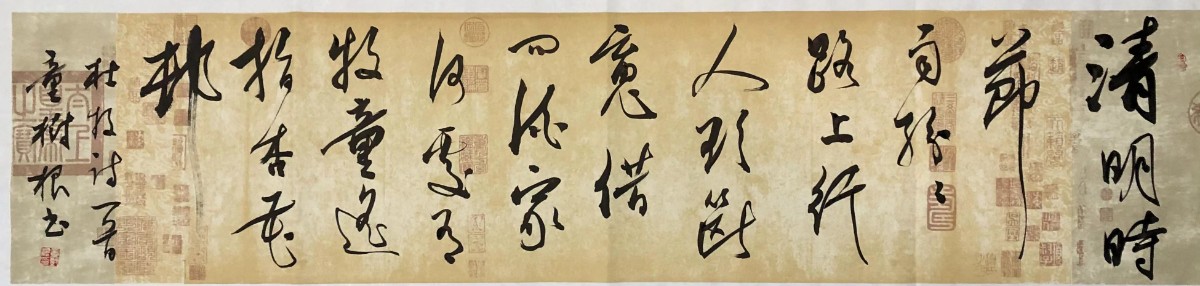 清明時
節
雨紛〻
路上行
人欲斷
魂借
問酒家
何處有
牧童遙
指杏花
邨
杜牧诗一首
童樹根书